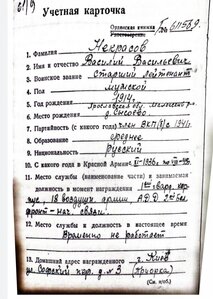 6/9
Учетная карточка
Орденская книжка
Удостоверение № 611539
1. Фамилия Некрасов
2. Имя и отчество Василий Васильевич
3. Воинское звание старший лейтенант
4. Пол мужской
5. Год рождения 1914 г.
6. Место рождения
д. Сысоево
7. Партийность (с какого года) член ВКП(б) с 1941 г.
8. Образование среднее
9. Национальность русский
10. С какого года в Красной Армии
11. Место службы (наименование части) и занимаемая
должность в момент награждения 1 гвард. кор-
пус, 18 воздуш. армии АДД
фронт - нач. связи
12. Место службы и должность в настоящее время
Временно не работает
13. Домашний адрес награжденного г. Киев
№ 3
(См. н/об.)